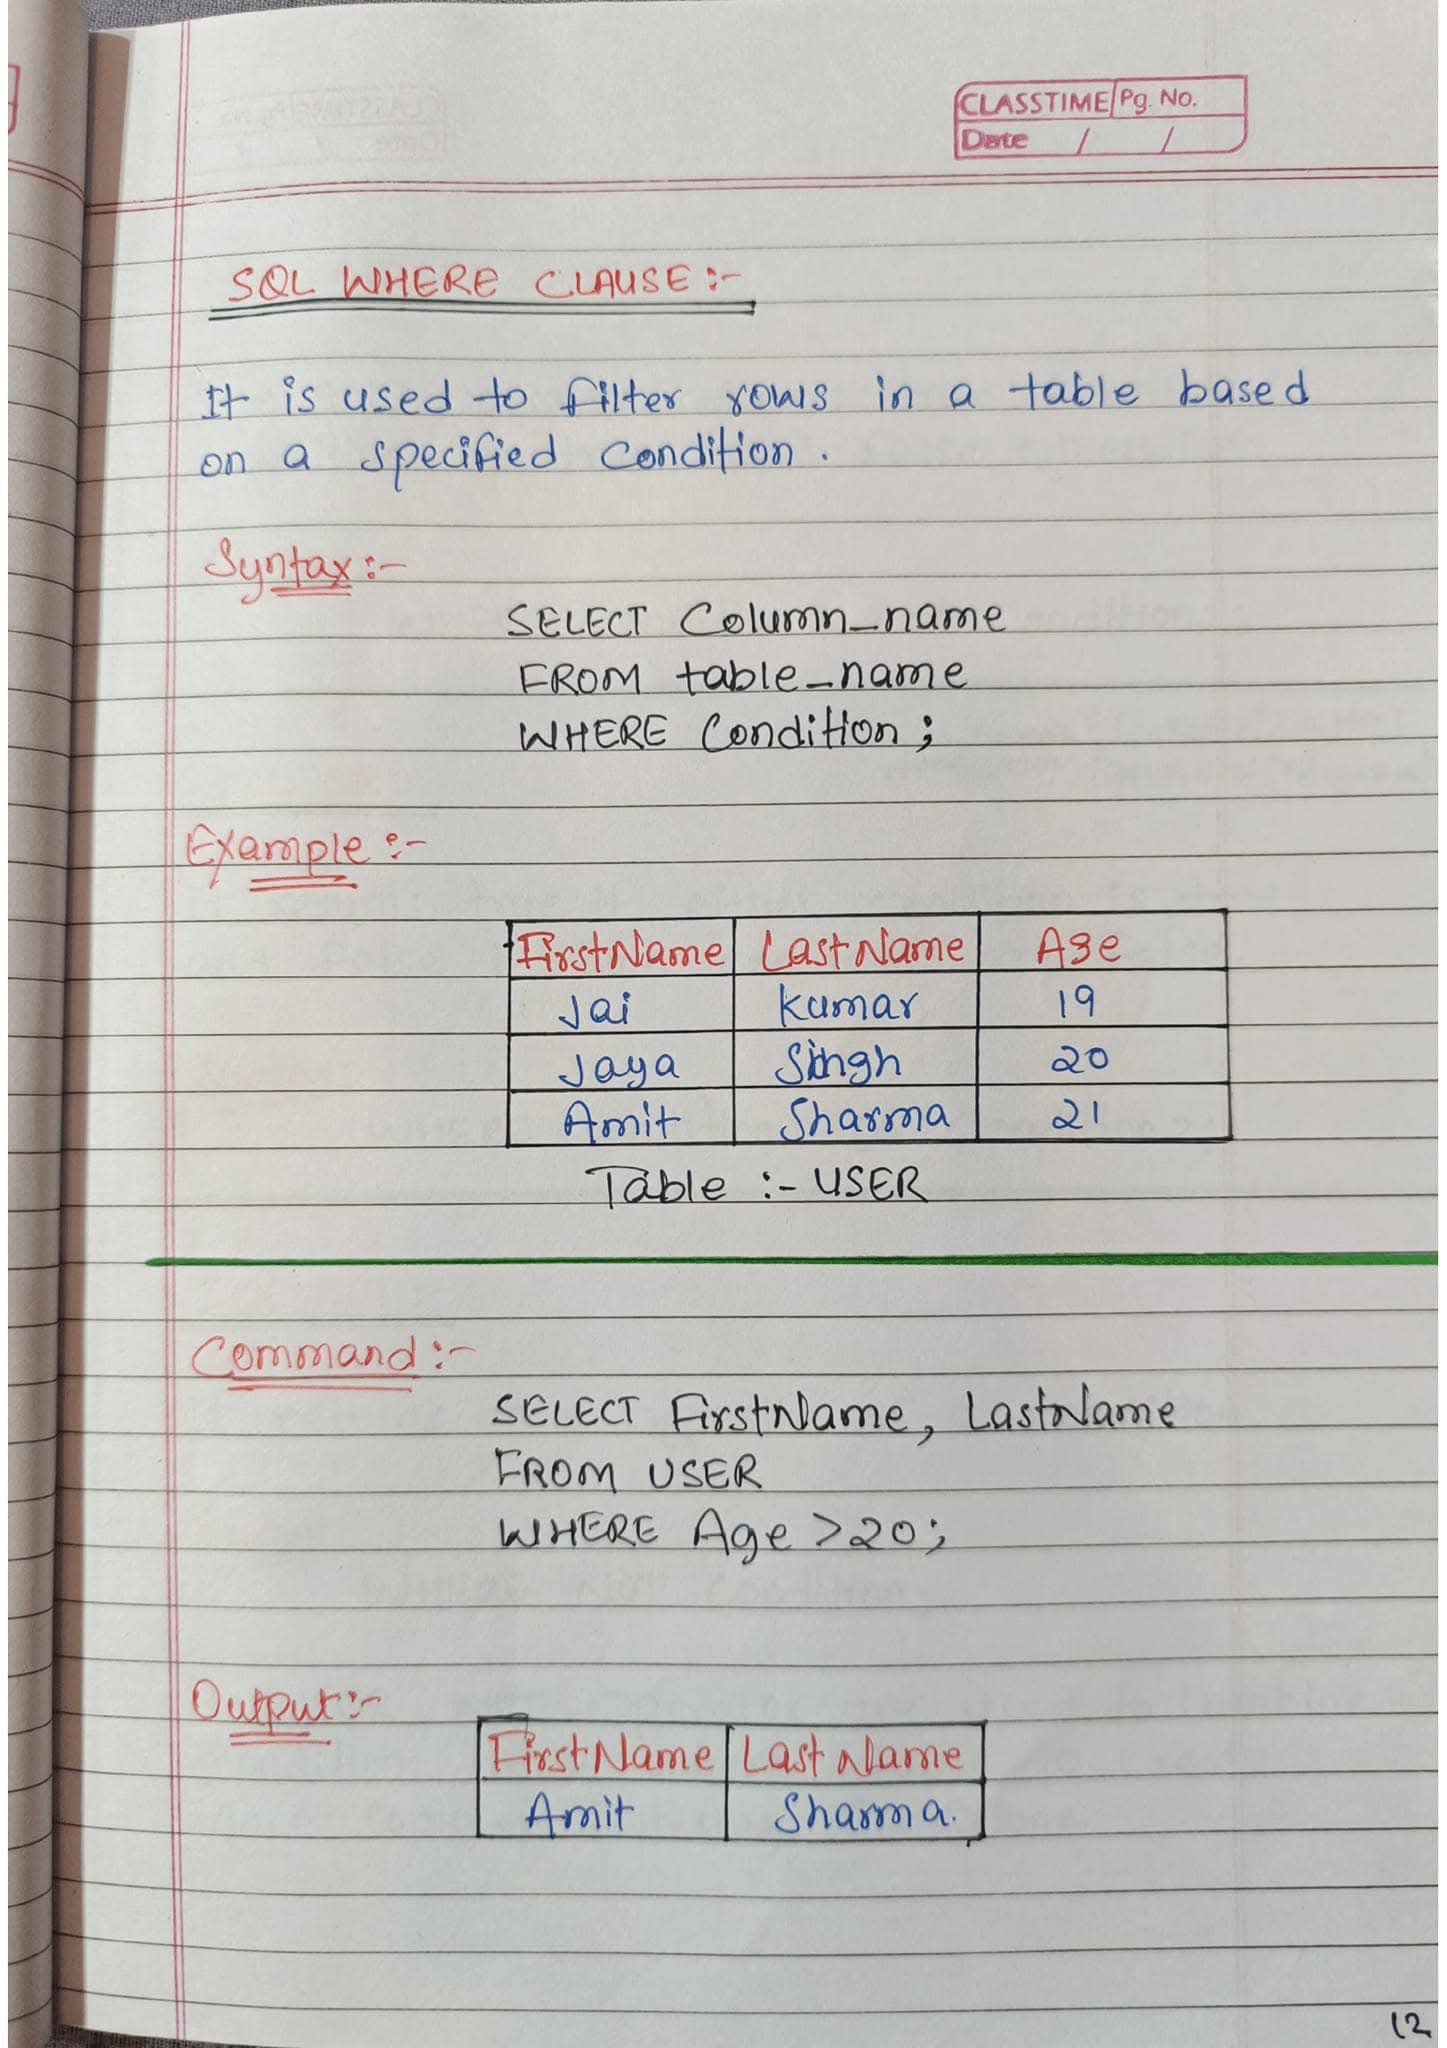 CLASSTIME Pg. No.
Date / /
SQL WHERE CLAUSE :-
It is used to filter rows in a table based
on a specified Condition .
Syntax :-
SELECT Column_name
FROM table_name
WHERE Condition ;
Example :-
FirstName LastName Age
Jai Kumar 19
Jaya Singh 20
Amit Sharma 21
Table :- USER
Command :-
SELECT FirstName, LastName
FROM USER
WHERE Age >20;
Output :-
FirstName Last Name
Amit Sharma.
12